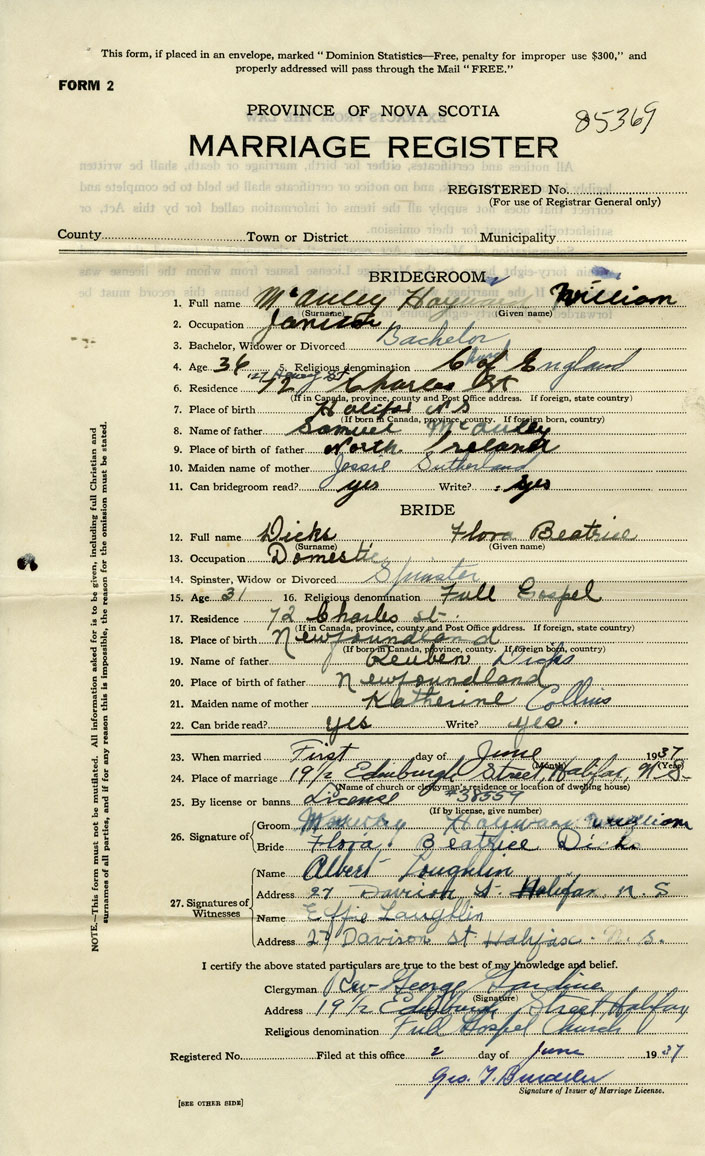 This form, if placed in an envelope, marked "Dominion Statistics—Free, penalty for improper use $300," and
properly addressed will pass through the Mail "FREE."
FORM 2
PROVINCE OF NOVA SCOTIA
85369
MARRIAGE REGISTER
REGISTERED No.
(For use of Registrar General only)
County Town or District Municipality
BRIDEGROOM
1. Full name McAuley Hayward William
(Surname) (Given name)
2. Occupation Janitor
3. Bachelor, Widower or Divorced Bachelor
4. Age 36 5. Religious denomination Church of England
6. Residence 72 Charles St
(If in Canada, province, county and Post Office address. If foreign, state country)
7. Place of birth Halifax N S
(If born in Canada, province, county. If foreign born, country)
8. Name of father Samuel McAuley
9. Place of birth of father North Ireland
10. Maiden name of mother Jessie Sutherland
11. Can bridegroom read? yes Write? yes
BRIDE
12. Full name Dicks Flora Beatrice
(Surname) (Given name)
13. Occupation Domestic
14. Spinster, Widow or Divorced Spinster
15. Age 31 16. Religious denomination Full Gospel
17. Residence 72 Charles st
(If in Canada, province, county and Post Office address. If foreign, state country)
18. Place of birth Newfoundland
(If born in Canada, province, county. If foreign born, country)
19. Name of father Reuben Dicks
20. Place of birth of father Newfoundland
21. Maiden name of mother Katherine Collins
22. Can bride read? yes Write? yes.
23. When married First day of June 1937
(Month) (Year)
24. Place of marriage 19 1/2 Edinburgh Street, Halifax, N S.
(Name of church or clergyman's residence or location of dwelling house)
25. By license or banns License #38557
(If by license, give number)
26. Signature of
Groom McAuley Hayward William
Bride Flora Beatrice Dicks
27. Signatures of Witnesses
Name Albert Loughlin
Address 27 Davison St. Halifax N S
Name Effie Laughlin
Address 27 Davison St Halifax N. S.
I certify the above stated particulars are true to the best of my knowledge and belief.
Clergyman Rev George Jardine
(Signature)
Address 19 1/2 Edinburgh Street Halifax
Religious denomination Full Gospel Church
Registered No. Filed at this office 2 day of June 1937
Geo. T.
Signature of Issuer of Marriage License.
[SEE OTHER SIDE]
NOTE.—This form must not be mutilated. All information asked for is to be given, including full Christian and
surnames of all parties, and if for any reason this is impossible, the reason for the omission must be stated.